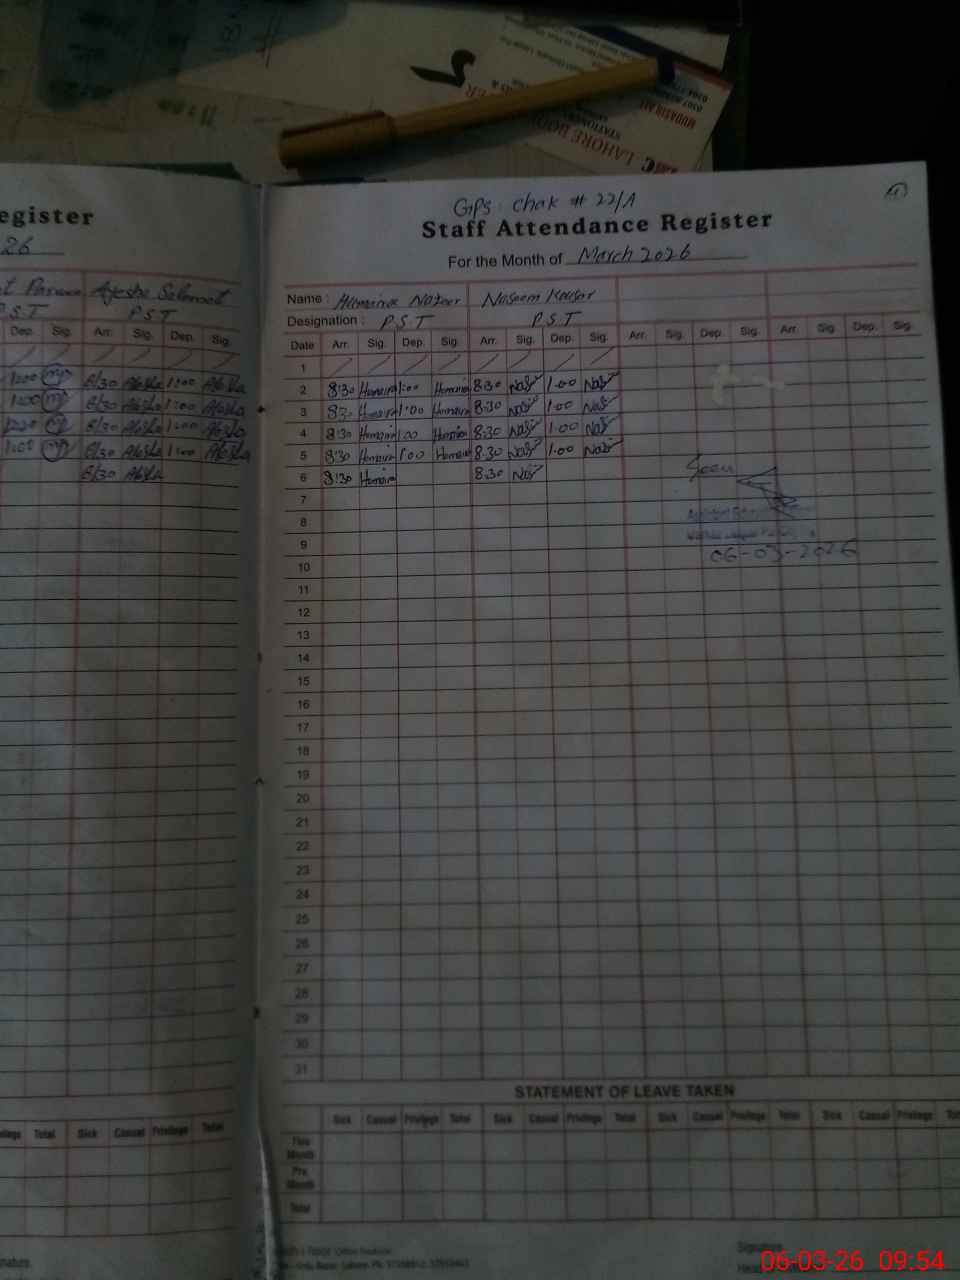 MUDASIR ALI
LAHORE BOO
STATIONER
egister
26
Ayesha Salamat
P.S.T P.S.T
Dep. Sig. Arr. Sig. Dep. Sig.
1:00 8/30 Ayesha 1:00 Ayesha
1:00 8/30 Ayesha 1:00 Ayesha
8/30 Ayesha 1:00 Ayesha
1:00 8/30 Ayesha 1:00 Ayesha
8/30 Ayesha
ilege Total Sick Casual Privilege Total
GPS. Chak # 22/A
Staff Attendance Register
For the Month of March 2026
Name : Humaira Nazeer Naseem Kousar
Designation : P.S.T P.S.T
Date Arr. Sig. Dep. Sig. Arr. Sig. Dep. Sig. Arr. Sig. Dep. Sig. Arr. Sig. Dep. Sig.
1
2 8:30 Humaira 1:00 Humaira 8:30 Nas 1:00 Nas
3 8:30 Humaira 1:00 Humaira 8:30 Nas 1:00 Nas
4 8:30 Humaira 1:00 Humaira 8:30 Nas 1:00 Nas
5 8:30 Humaira 1:00 Humaira 8:30 Nas 1:00 Nas
6 8:30 Humaira 8:30 Nas
Seen
7
8
9
06-03-2026
10
11
12
13
14
15
16
17
18
19
20
21
22
23
24
25
26
27
28
29
30
31
STATEMENT OF LEAVE TAKEN
Sick Casual Privilege Total Sick Casual Privilege Total Sick Casual Privilege Total Sick Casual Privilege Tot
This Month
Pre. Month
Total
Signature
06-03-26 09:54